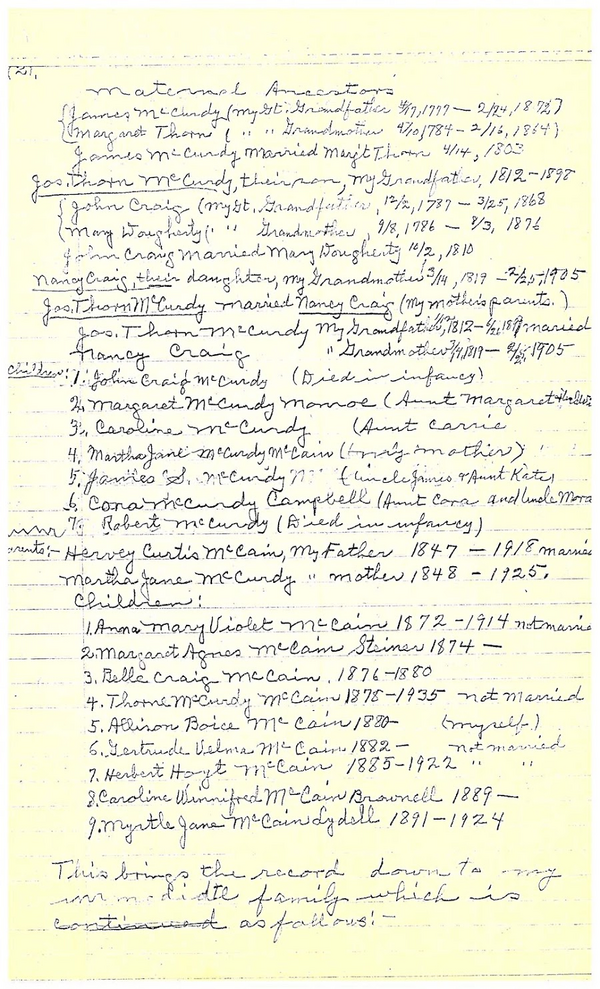 (2).
Maternal Ancestors
James McCurdy (My Gt. Grandfather 4/17, 1777 — 2/24, 1872)
Margaret Thorn ( " " Grandmother 1784 — 2/16, 1864)
James McCurdy Married Marg't Thorn 4/14, 1803
Jos. Thorn McCurdy, their son, My Grandfather, 1812 - 1898
John Craig (My Gt. Grandfather, 12/2, 1787 — 3/25, 1868
Mary Dougherty ( " " Grandmother, 9/8, 1786 — 8/3, 1876
John Craig Married Mary Dougherty 10/2, 1810
Nancy Craig, their daughter, My Grandmother 3/14, 1819 — 1905
Jos. Thorn McCurdy married Nancy Craig (My mother's parents.)
Jos. Thorn McCurdy My Grandfather, 1812 - married
Nancy Craig " Grandmother 1819 — 1905
Children: 1. John Craig McCurdy (Died in infancy)
2. Margaret McCurdy Monroe (Aunt Margaret
3. Caroline McCurdy (Aunt Carrie
4. Martha Jane McCurdy McCain (my mother)
5. James S. McCurdy (Uncle James & Aunt Kate)
6. Cora McCurdy Campbell (Aunt Cora and Uncle
7. Robert McCurdy (Died in infancy)
Hervey Curtis McCain, My Father 1847 — 1918 married
Martha Jane McCurdy " mother 1848 - 1925.
Children:
1. Anna Mary Violet McCain 1872 - 1914 not married
2. Margaret Agnes McCain Steiner 1874 —
3. Bella Craig McCain, 1876 - 1880
4. Thorne McCurdy McCain 1878 - 1935 not married
5. Allison Boice McCain 1880 - (myself.)
6. Gertrude Velma McCain 1882 - not married
7. Herbert Hoyt McCain 1885 - 1922 " "
8. Caroline Winnifred McCain Brownell 1889 —
9. Myrtle Jane McCain Lydell 1891 - 1924
This brings the record down to my
immedidte family which is
continued as follows:-